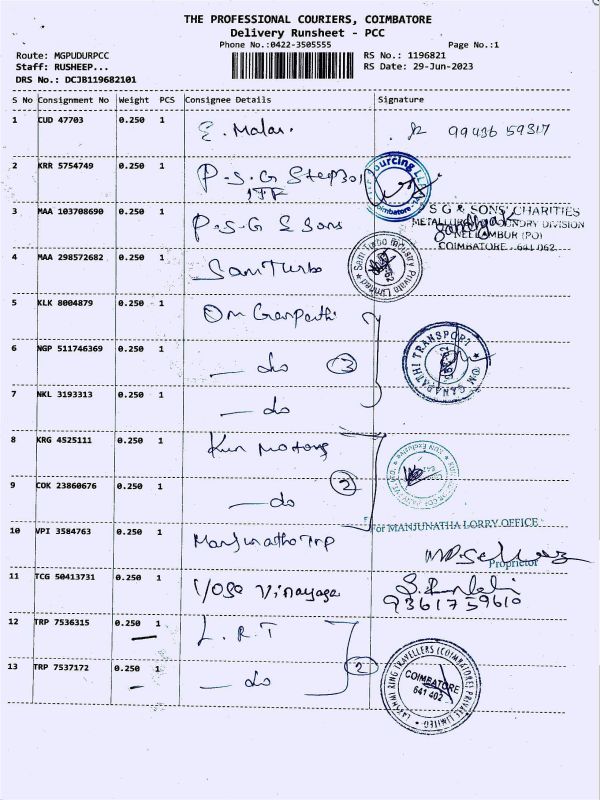 THE PROFESSIONAL COURIERS, COIMBATORE
Delivery Runsheet - PCC
Phone No.:0422-3505555
Page No.:1
Route: MGPUDURPCC
RS No.: 1196821
Staff: RUSHEEP...
RS Date: 29-Jun-2023
DRS No.: DCJB119682101
S No Consignment No Weight PCS Consignee Details Signature
1 CUD 47703 0.250 1 E. Malar. 99436 59317
2 KRR 5754749 0.250 1 P.S.G
3 MAA 103708690 0.250 1 P.S.G & Sons
S G & SONS' CHARITIES
METALLURGY & FOUNDRY DIVISION
NEELAMBUR (PO)
COIMBATORE - 641 062
4 MAA 298572682 0.250 1 Sam Turbo
Sam Turbo Industry Private Limited
5 KLK 8004879 0.250 1 Om Ganpathi
6 NGP 511746369 0.250 1 — do (3)
OM GANAPATHI TRANSPORT
7 NKL 3193313 0.250 1 — do
8 KRG 4525111 0.250 1
9 COK 23860676 0.250 1 — do (2)
10 VPI 3584763 0.250 1 Manjunatha Trp
For MANJUNATHA LORRY OFFICE
Proprietor
11 TCG 50413731 0.250 1 Vinayaga
9361759610
12 TRP 7536315 0.250 1 L.R.T
13 TRP 7537172 0.250 1 — do (2)
LAKSHMI RING TRAVELLERS (COIMBATORE) PRIVATE LIMITED
COIMBATORE
641 402